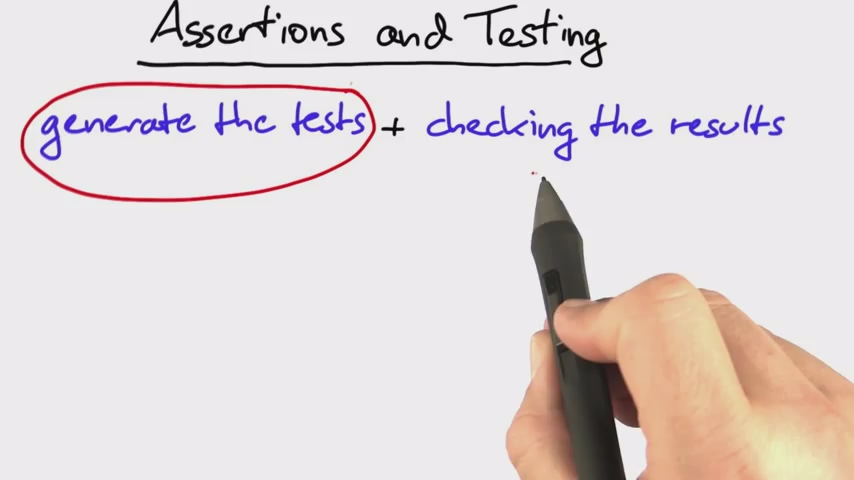 Assertions and Testing
generate the tests + checking the results